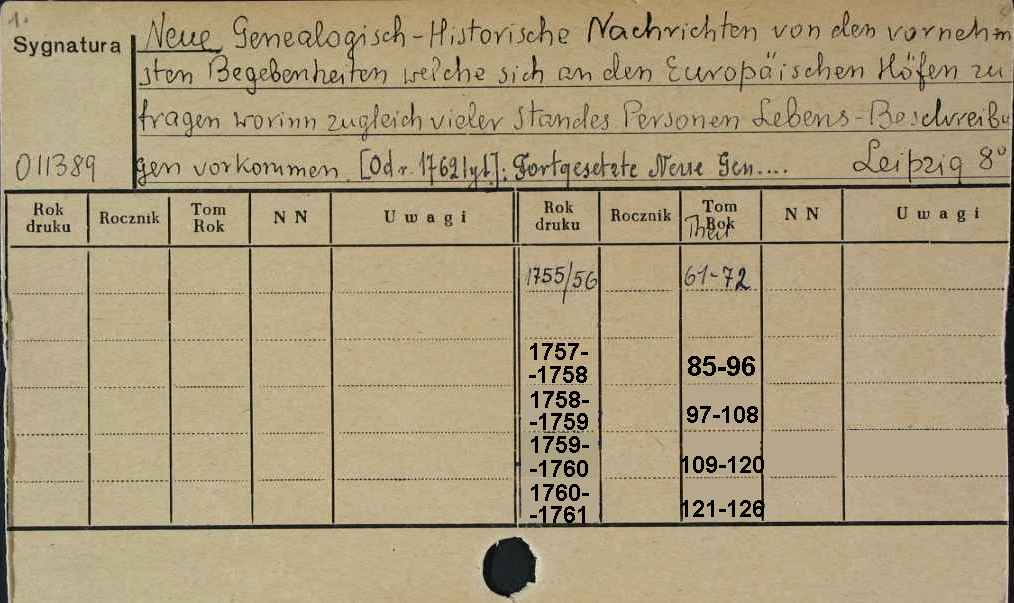 1.
Sygnatura
Neue Genealogisch-Historische Nachrichten von den vornehm
sten Begebenheiten welche sich an den Europäischen Höfen zu
tragen worinn zugleich vieler Standes Personen Lebens-Beschreibu
011389 gen vorkommen. [Od r. 1762 tyt.]: Fortgesetzte Neue Gen.... Leipzig 8°
Rok druku Rocznik Tom Rok NN Uwagi Rok druku Rocznik Tom Rok Theil NN Uwagi
1755/56 61-72
1757-
-1758 85-96
1758-
-1759 97-108
1759-
-1760 109-120
1760-
-1761 121-126